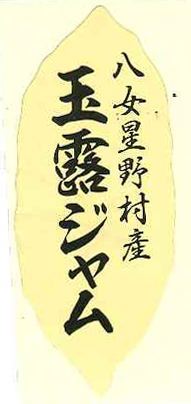 八女星野村産
玉露ジャム